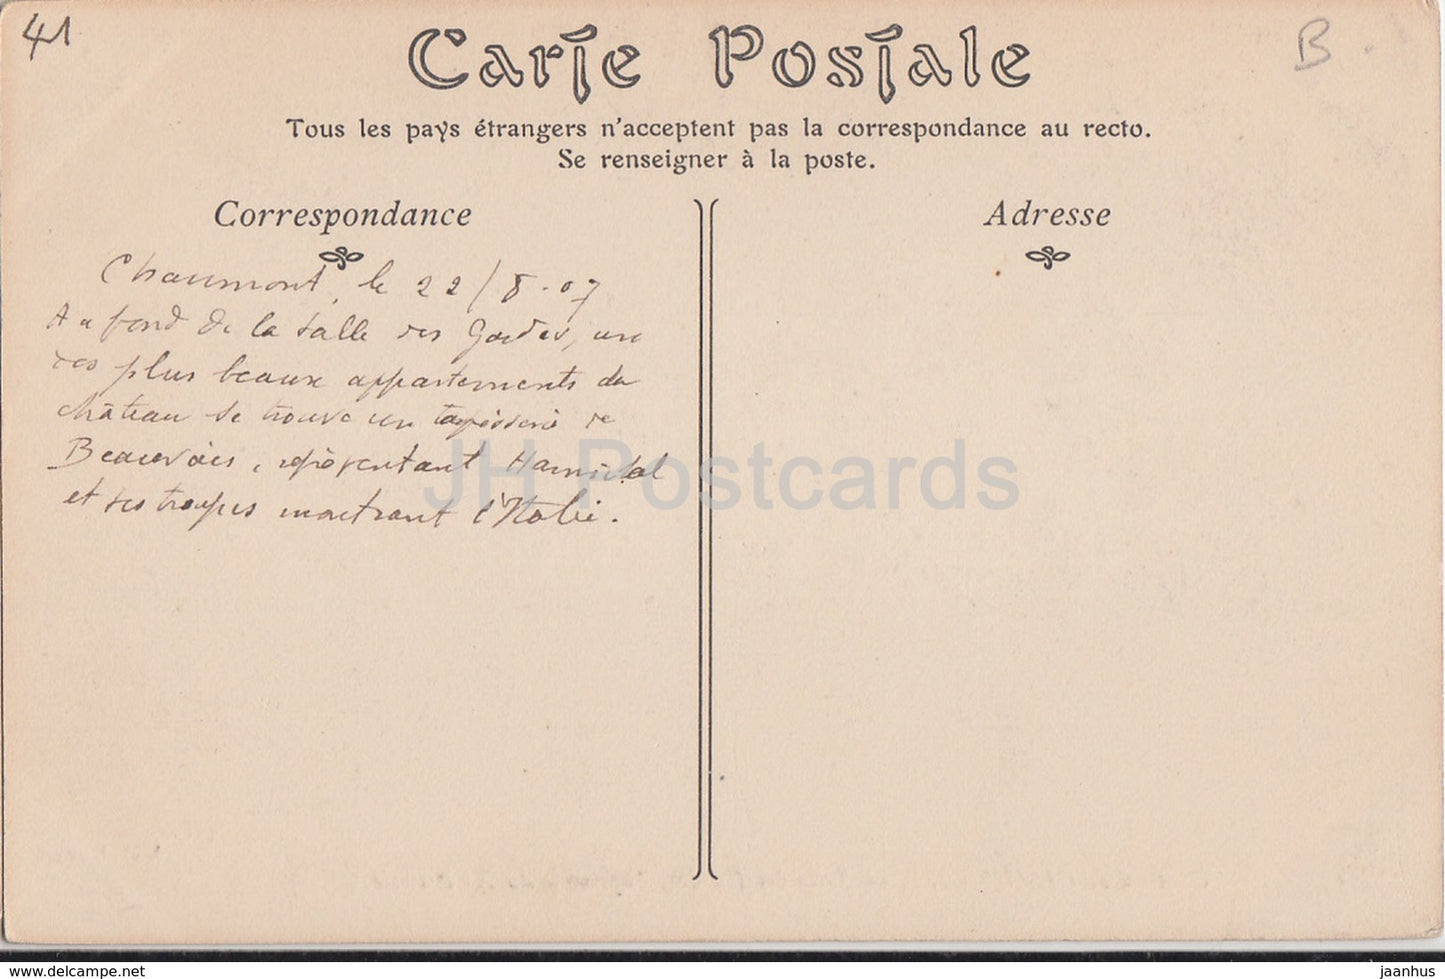 41
B
Carte Postale
Tous les pays étrangers n'acceptent pas la correspondance au recto.
Se renseigner à la poste.
Correspondance
Adresse
Chaumont, le 22/8.07
Au fond de la salle des Gardes, un
des plus beaux appartements du
château se trouve un tapisserie de
Beauvais, représentant Hannibal
et ses troupes montrant l'Italie.
JH Postcards
www.delcampe.net
jaanhus